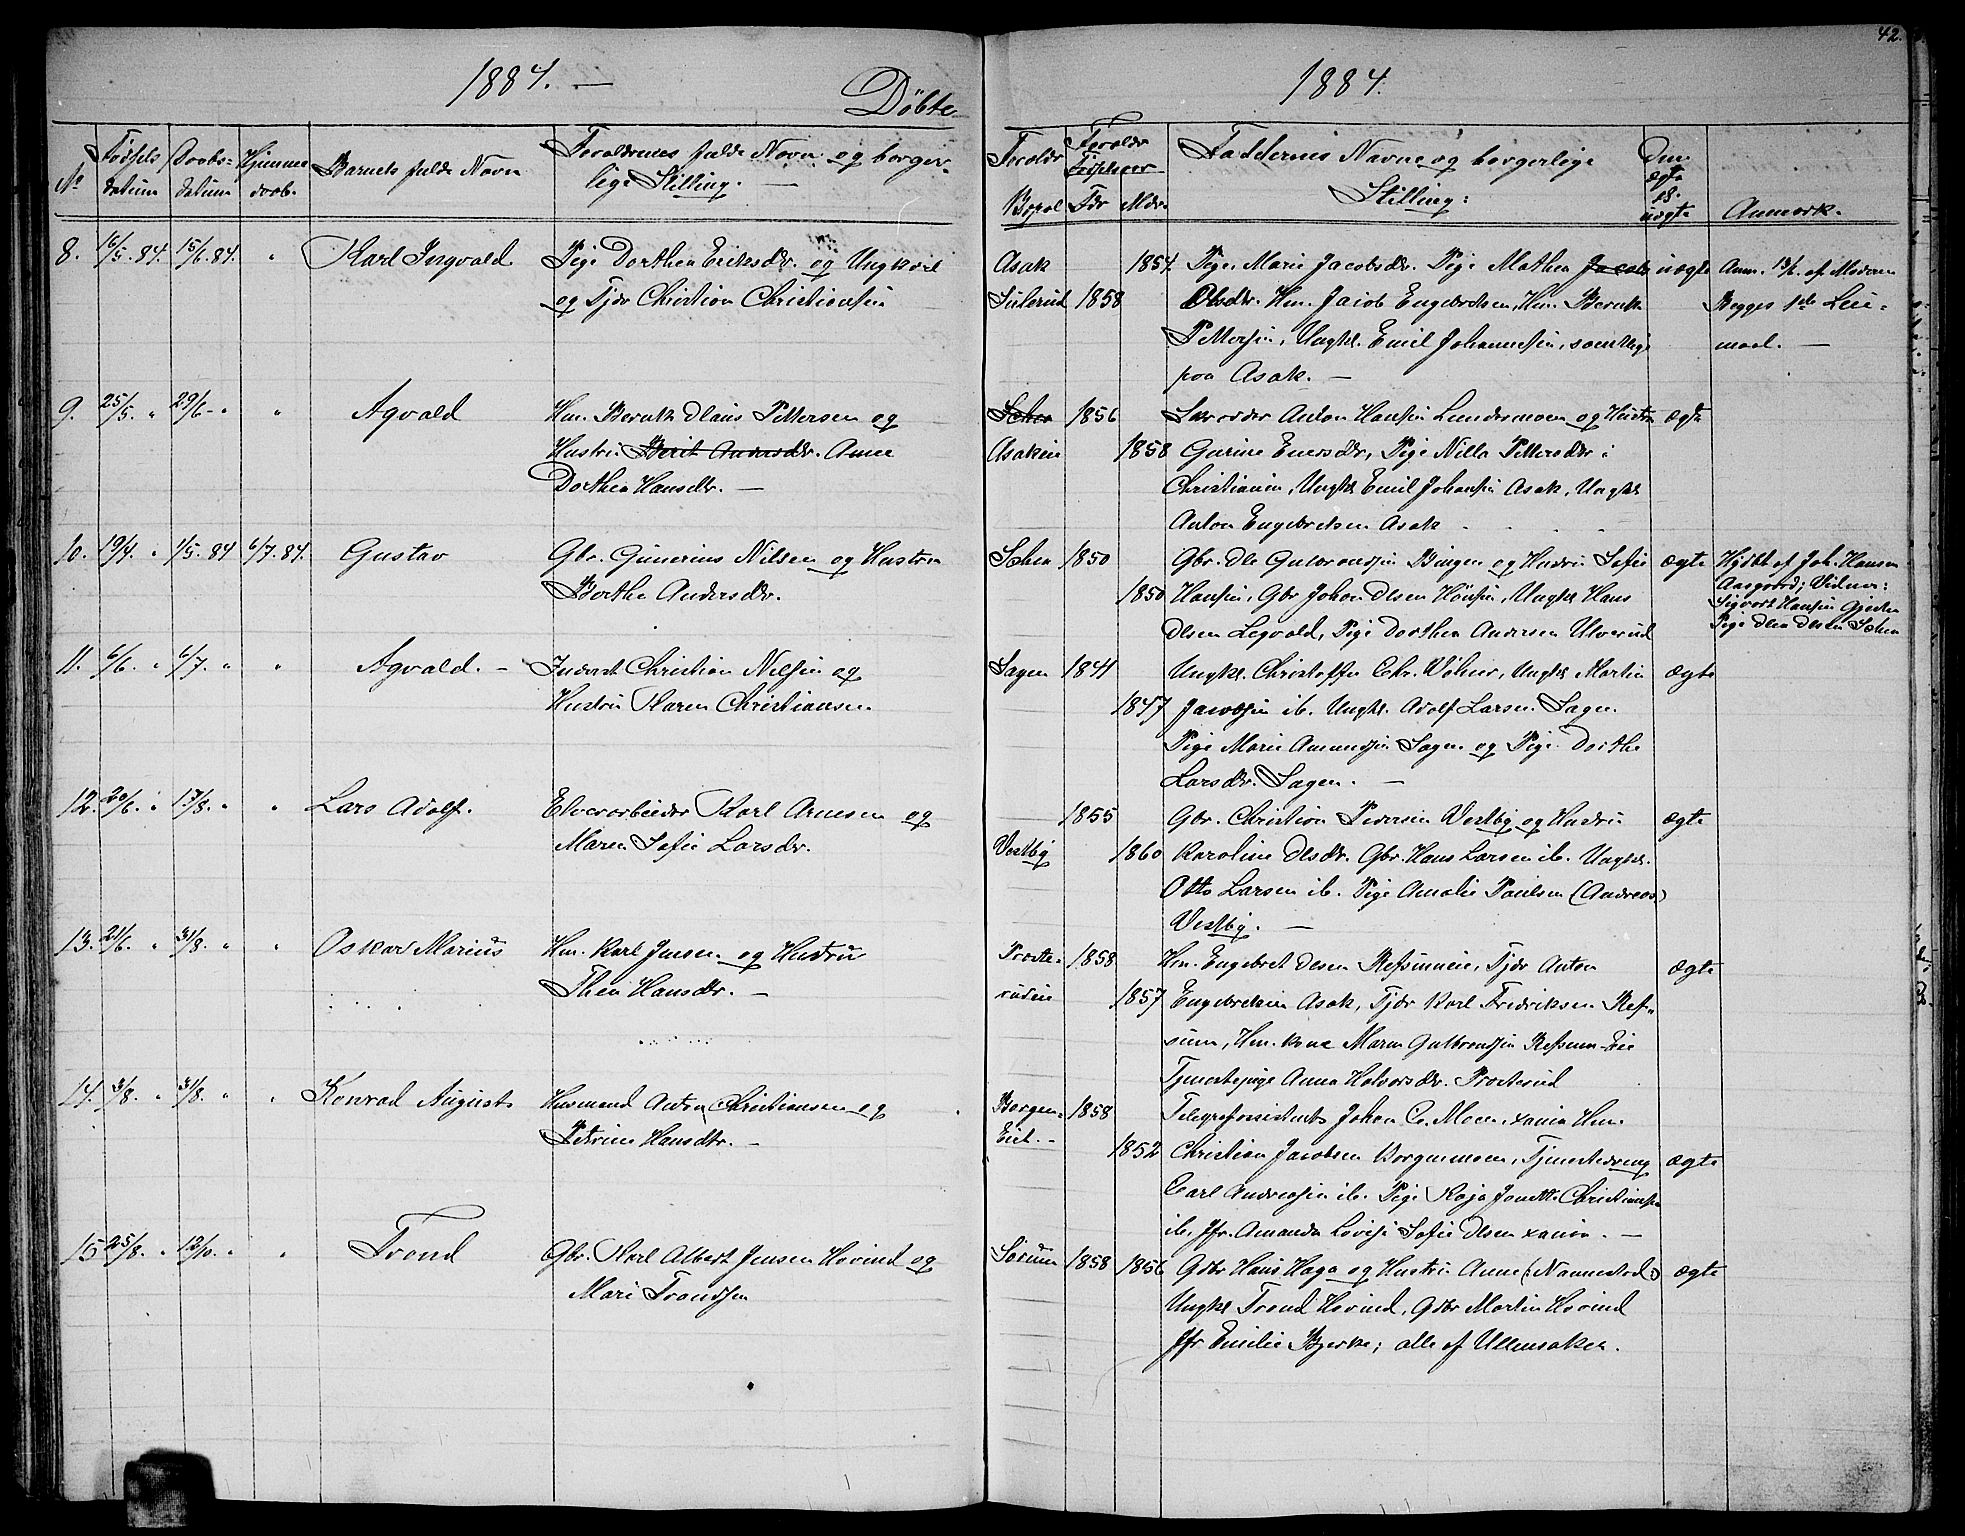 42.
1884. —
Döbte
1884.
No
Födsels datum
Daabs- datum
Hjemme daab.
Barnets fulde Navn
Forældrenes fulde Navn og borger-
lige Stilling. —
Forældr Bopæl
Forældr Fødselsaar
Fdr
Mdr.
Faddernes Navne og borgerlige
Stilling:
Om ægte el. uægte
Anmærk.
8. 16/5. 84. 15/6. 84. " Karl Ingvald Pige Dorthea Eriksdr. og Ungkarl
og Tjdr Christian Christiansen
Asak 1854. Pige Marie Jacobsdr. Pige Mathea Jacobs uægte Anm. 13/6. af Moderen
1858 Olsdr. Hm. Jacob Engebretsen, Hm. Bernt Begges 1ste Lei-
Pettersen, Ungkl. Emil Johannesen, samtlige maal. —
paa Asak. —
9. 25/5. " 29/6 - " " Agvald Hm. Bernt Olaus Pettersen og
Hustru Berit Andersdr. Anne
Dorthea Hansdr. —
1856 Anton Hansen Lundermoen og Hustru ægte
Asakeie 1858 Gurine Enersdr, Pige Nilla Pettersdr i
Christiania, Ungkl Emil Johansen Asak, Ungkl
Anton Engebretsen Asak
10. 19/4. " 1/5. 84 6/7. 84. Gustav Gbr. Gunerius Nilsen og Hustru
Berthe Andersdr.
1850 Gbr. Ole Gulbrandsen Bingen og Hustru Sofie ægte Hjdbt af Joh. Hansen
Aasgaard; Vidner:
1850 Hansen, Gbr Johan Olsen Hönsen, Ungkl Hans Sigvart Hansen
Olsen Legvold, Pige Dorthea Andersen Ulverud Pige Olea Olsen
11. 6/6. " 6/7. " " Agvald. — Inderst Christian Nilsen og
Hustru Karen Christiansen
Sagen 1844 Ungkl. Christoffer Chr. Völner, Ungkl Martin ægte
1847 Jacobsen ib. Ungkl. Adolf Larsen Sagen.
Pige Marie Amundsen Sagen og Pige Dorthe
Larsdr. Sagen. —
12. 20/6. " 17/8. " " Lars Adolf. Elvearbeider Karl Arnesen og
Maren Sofie Larsdr.
1855 Gbr. Christian Pedersen Vestby og Hustru ægte
Vestby 1860 Karoline Olsdr. Gbr. Hans Larsen ib. Ungkl.
Otto Larsen ib. Pige Amalie Paulsen (Andreas)
Vestby. —
13. 21/6. " 31/8. " " Oskar Marius Hm. Karl Jensen og Hustru
Thea Hansdr. —
Proste- 1858 Hm. Engebret Olsen Refsumeie, Tjdr Anton ægte
rudeie 1857 Engebretsen Asak, Tjdr Karl Fredriksen Ref-
sum, Hm. kone Maren Gulbrandsen Refsum Eie
Tjenestepige Anna Halvorsdr. Prosterud
14. 3/8. " 31/8. " " Konrad August Husmand Anton Christiansen og
Petrine Hansdtr. —
Borgen- 1858 Telegrafassistent Johan C. Moen, Xania Hm.
Eiet. - 1852 Christian Jacobsen Borgenmoen, Tjenestedreng ægte
Carl Andreasen ib. Pige Kaja Janette Christiansen
ib, Jfr. Amanda Lovise Sofie Olsen Xania. —
15 25/8. " 12/10. " " Trond Gbr. Karl Albert Jensen Hovind og
Mari Trondsen
Sörum 1858 1856 Gdbr Hans Haga og Hustru Anne (: Nannestad :) ægte
Ungkl Trond Hovind, Gdbr Martin Hovind
Jfr Emilie Bjerke; alle af Ullensaker.